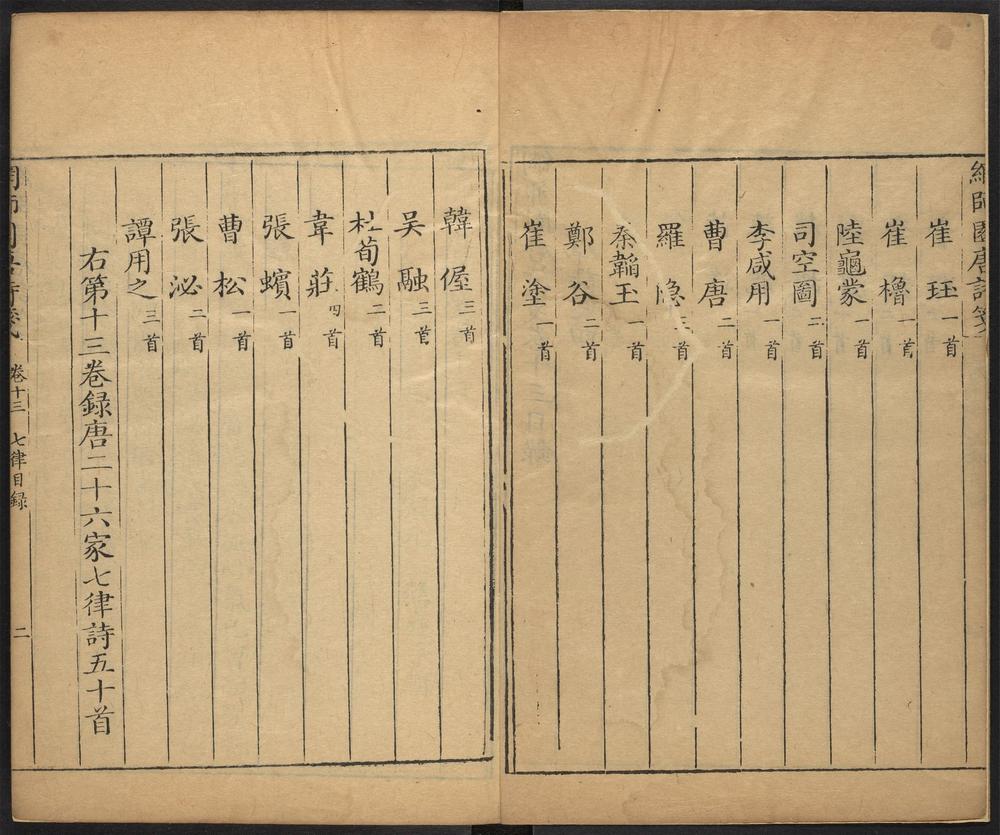 網師園唐詩箋
崔珏 一首
崔櫓 一首
陸龜蒙 一首
司空圖 二首
李咸用 一首
曹唐 二首
羅隐 三首
秦韜玉 一首
鄭谷 二首
崔塗 一首
韓偓 三首
吴融 三首
杜荀鶴 二首
韋莊 四首
張蠙 一首
曹松 一首
張泌 二首
譚用之 三首
右第十三卷録唐二十六家七律詩五十首
網師園唐詩箋 卷十三 七律目録 二